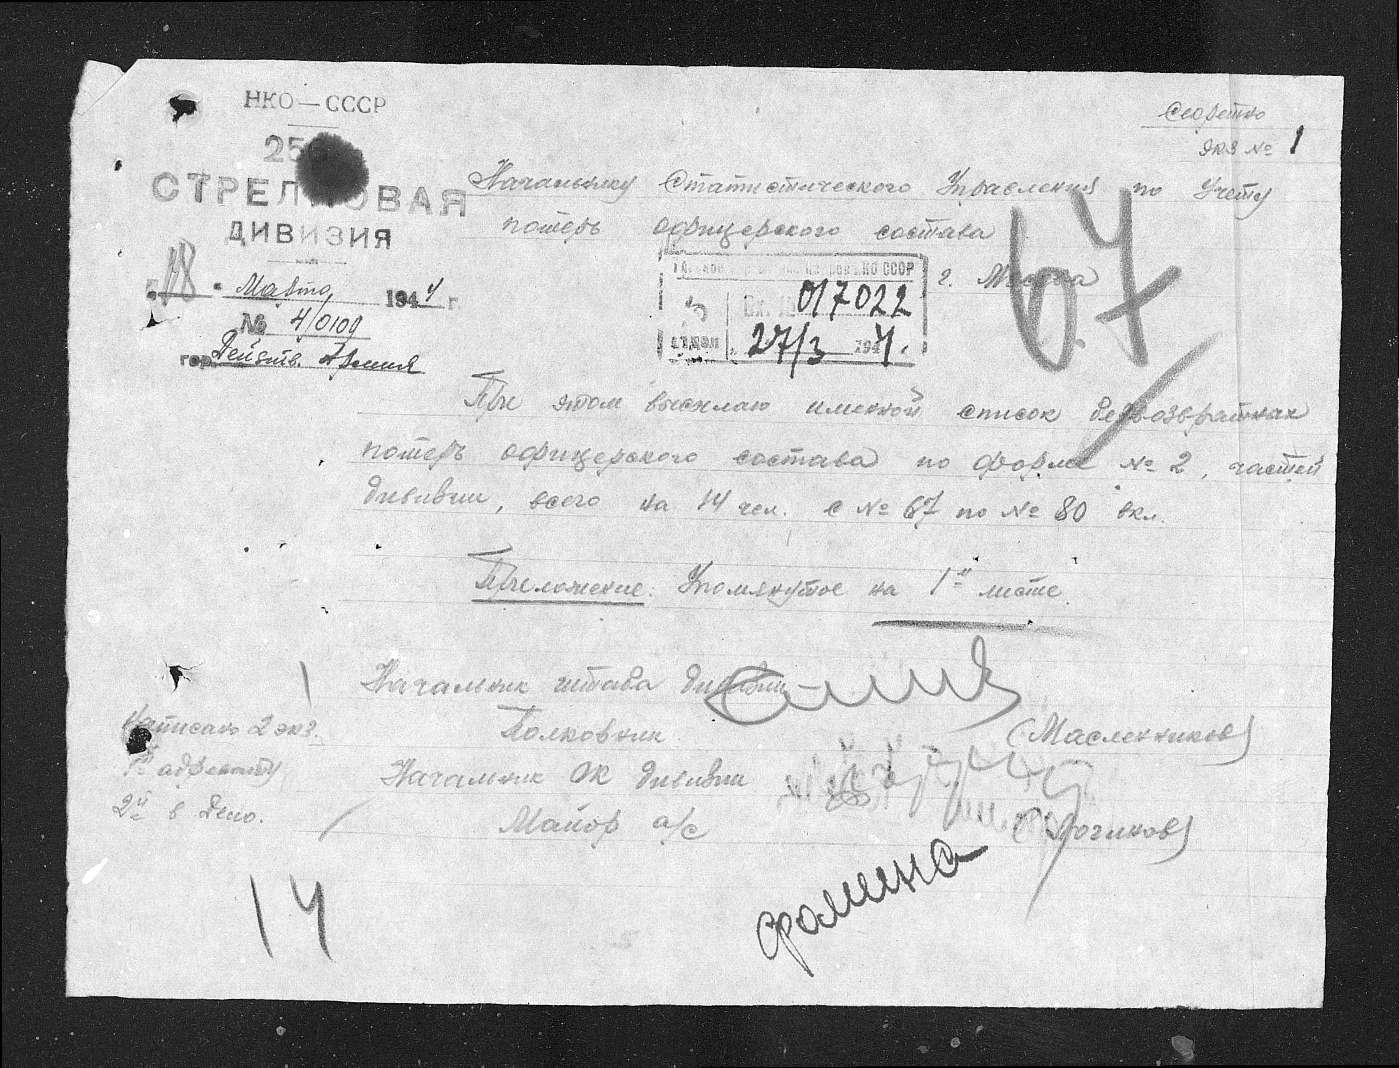 НКО—СССР
25
СТРЕЛКОВАЯ
ДИВИЗИЯ
"18" Марта 1944 г.
№ 4/0109
гор. Действ. Армия
Секретно
экз № 1
Начальнику Статистического Управления по Учету
потерь офицерского состава
г. Москва
67
КО СССР
5 отдел
Вх. № 017022
27/3 1944.
При этом высылаю именной список безвозвратных
потерь офицерского состава по форме № 2, частей
дивизии, всего на 14 чел. с № 67 по № 80 вкл.
Приложение: Упомянутое на 1м листе.
Начальник штаба дивизии
Полковник (Масленников)
Начальник ОК дивизии
Майор а/с
Написано 2 экз.
1й адресату
2й в дело.
14
Фомина